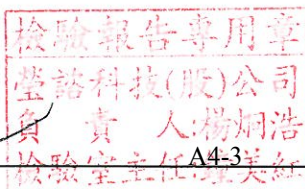 檢驗報告專用章
瑩諮科技(股)公司
負責人:楊炯浩
檢驗室主任:美紅
A4-3